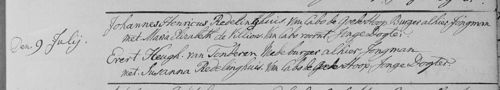 Johannes Henricus Redelinghuis Van Cabo de Goede Hoop Burger alhier Jongman
met Maria Elisabeth de Villiers Van Cabo voornt. Jonge Dogter.
Den 9 Julij.
Evert Heugh. van Tonderen Mede burger alhier, Jongman
met. Susanna Redelinghuis. Van Cabo de Goede Hoop, Jonge Dogter.